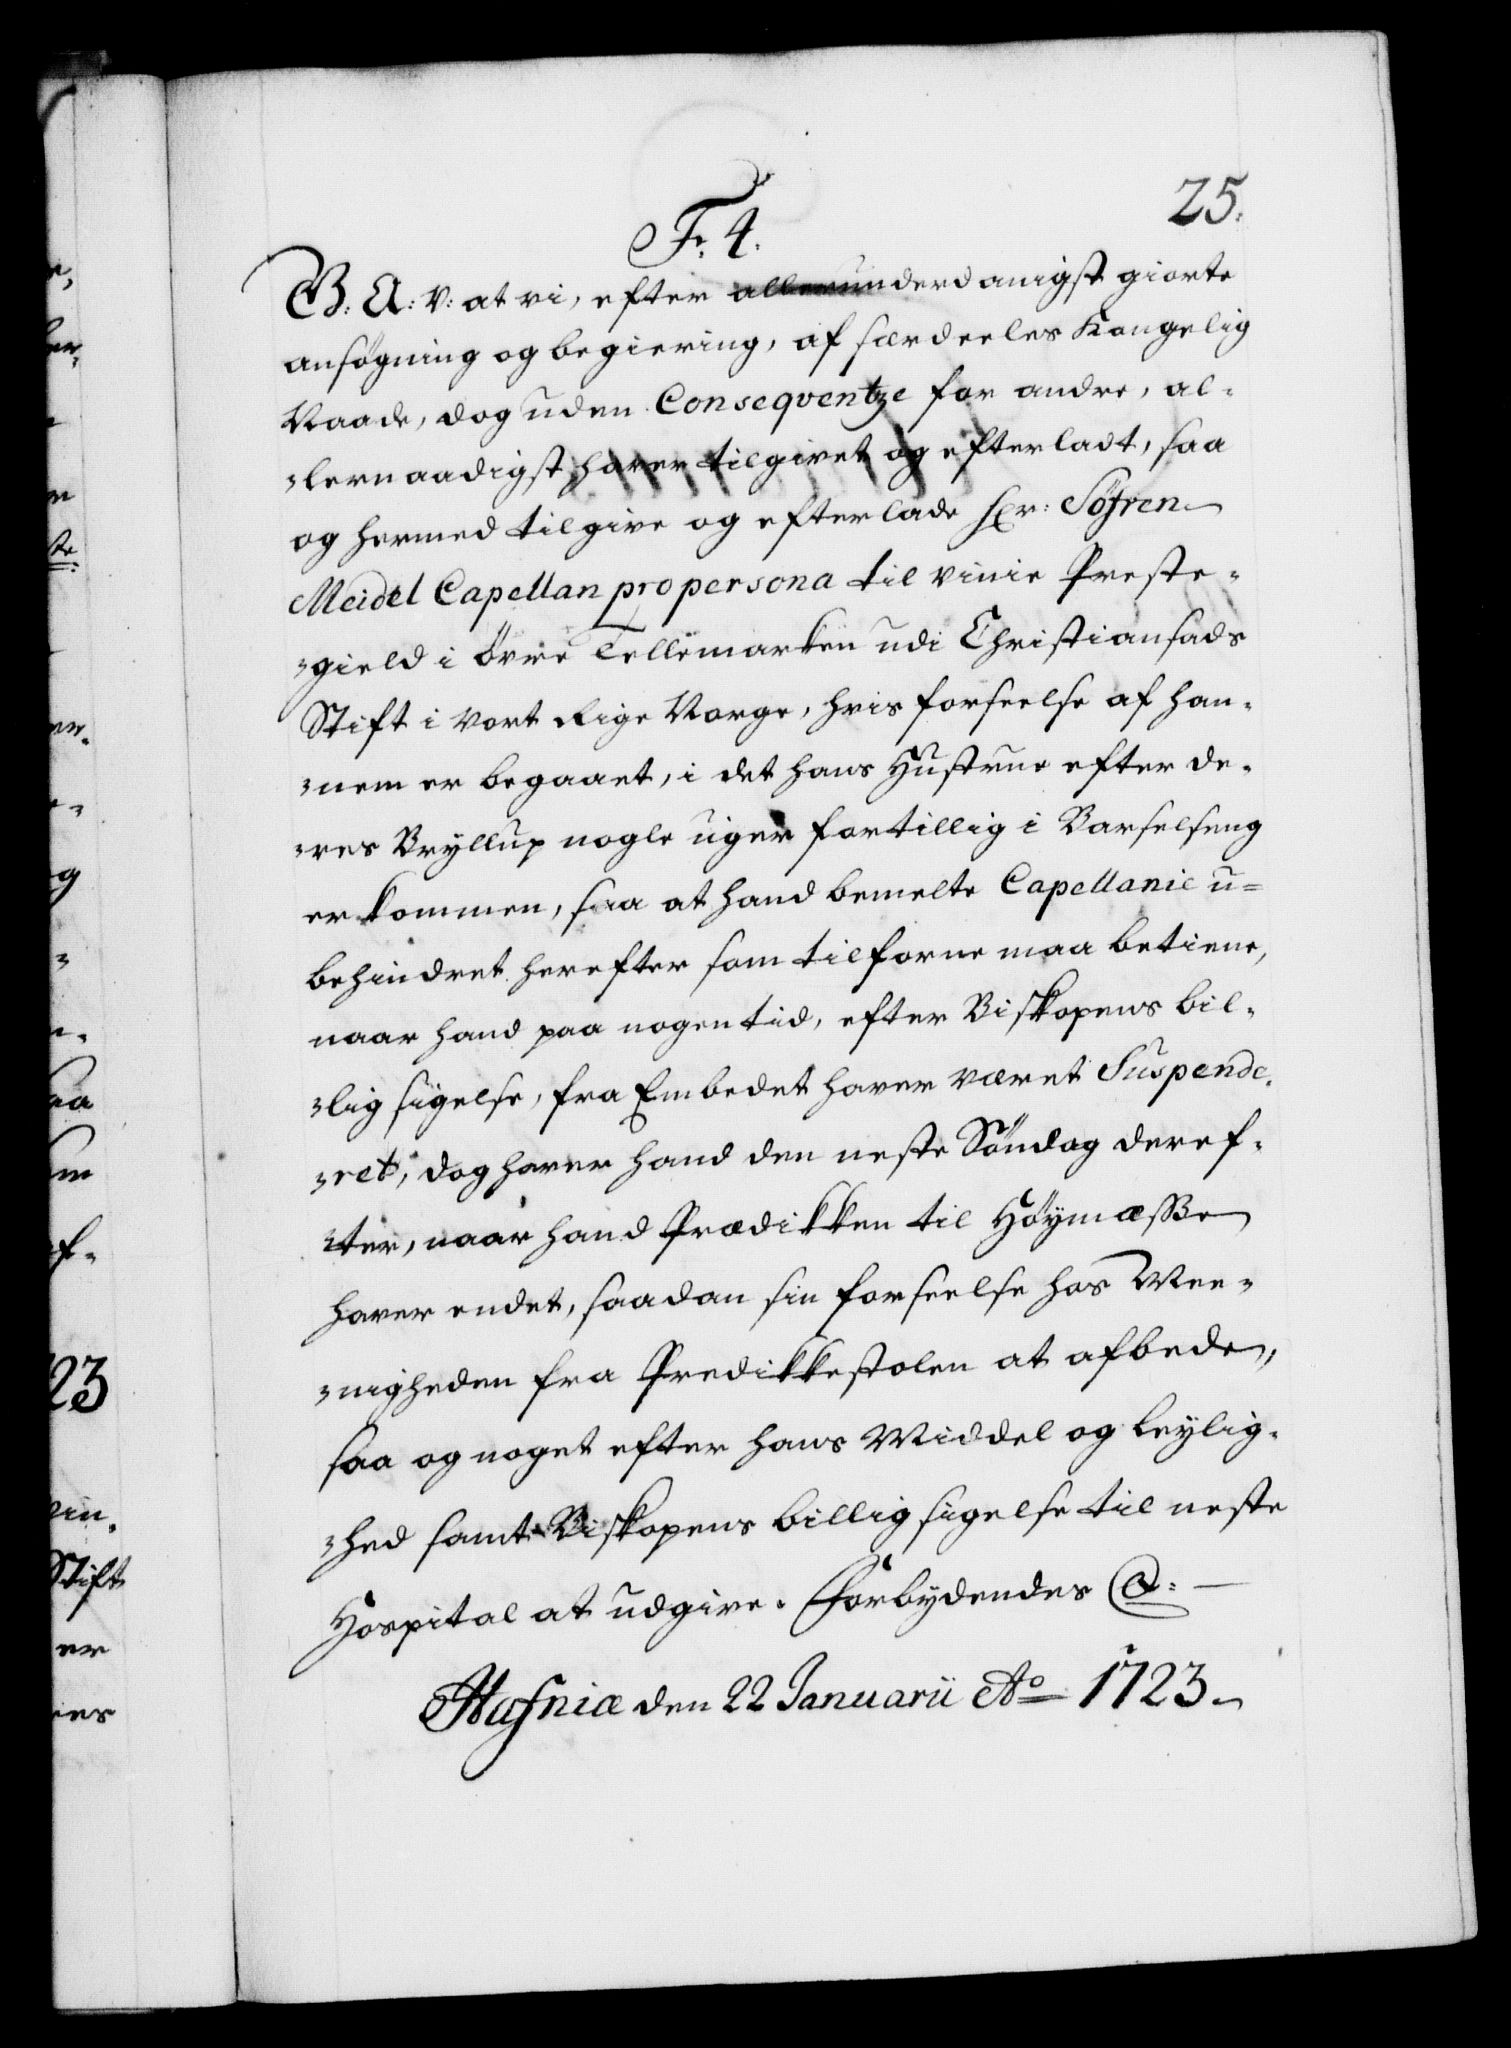 25.
Fr. 4.
G: A: V: at vi, efter allerunderdanigst giorte
ansøgning og begiering, af særdeeles Kongelig
Naade, dog uden Conseqventze for andre, al-
lernaadigst haver tilgivet og efterladt, saa
og hermed tilgive og efterlade Hr: Söfren
Meidel Capellan pro persona til Vinie Preste-
gield i Övre Tellemarken udi Christiansads
Stift i vort Rige Norge, hvis forseelse af han-
nem er begaaet, i det hans Hustrue efter de-
res Bryllup nogle uger fortillig i Barselseng
er kommen, saa at hand bemelte Capellanie u-
behindret herefter som tilforne maa betiene,
naar hand paa nogen tid, efter Biskopens bil-
lig sigelse, fra Embedet haver været Suspende-
ret, dog haver hand den neste Söndag deref-
ter, naar hand Prædikken til Höymæsse
haver endet, saadan sin forseelse hos Mee-
nigheden fra Predikkestolen at afbede,
saa og noget efter hans Middel og leylig-
hed samt Biskopens billig sigelse til neste
Hospital at udgive. Forbydendes &:
Hafniæ den 22 Januarii Ao 1723.